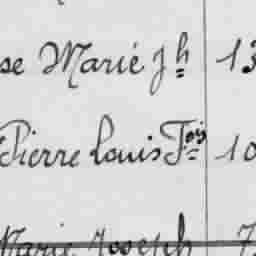 se Marié Jh 13
Pierre Louis Fois 10
Marie Joseph 7